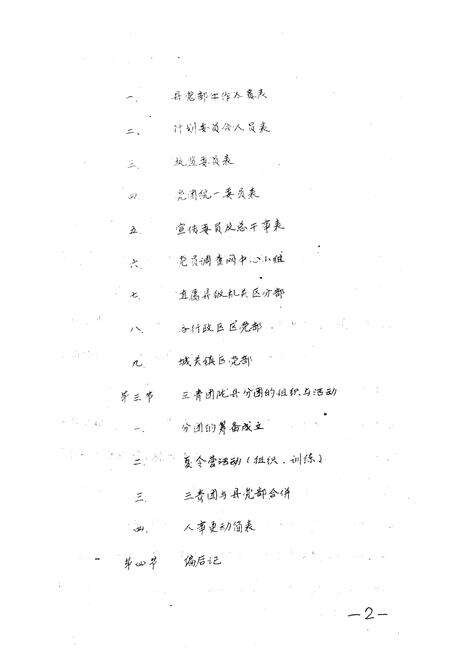 一、 县党部工作人员表
二、 计划委员会人员表
三 执监委员表
四 党团统一委员表
五 宣传委员及总干事表
六 党员调查网中心小组
七 直属县级机关区分部
八、 各行政区区党部
九 城关镇区党部
第三节 三青团陇县分团的组织与活动
一、 分团的筹备成立
二 夏令营活动（组织、训练）
三、 三青团与县党部合併
四、 人事更动简表
第四节 编后记
—2—